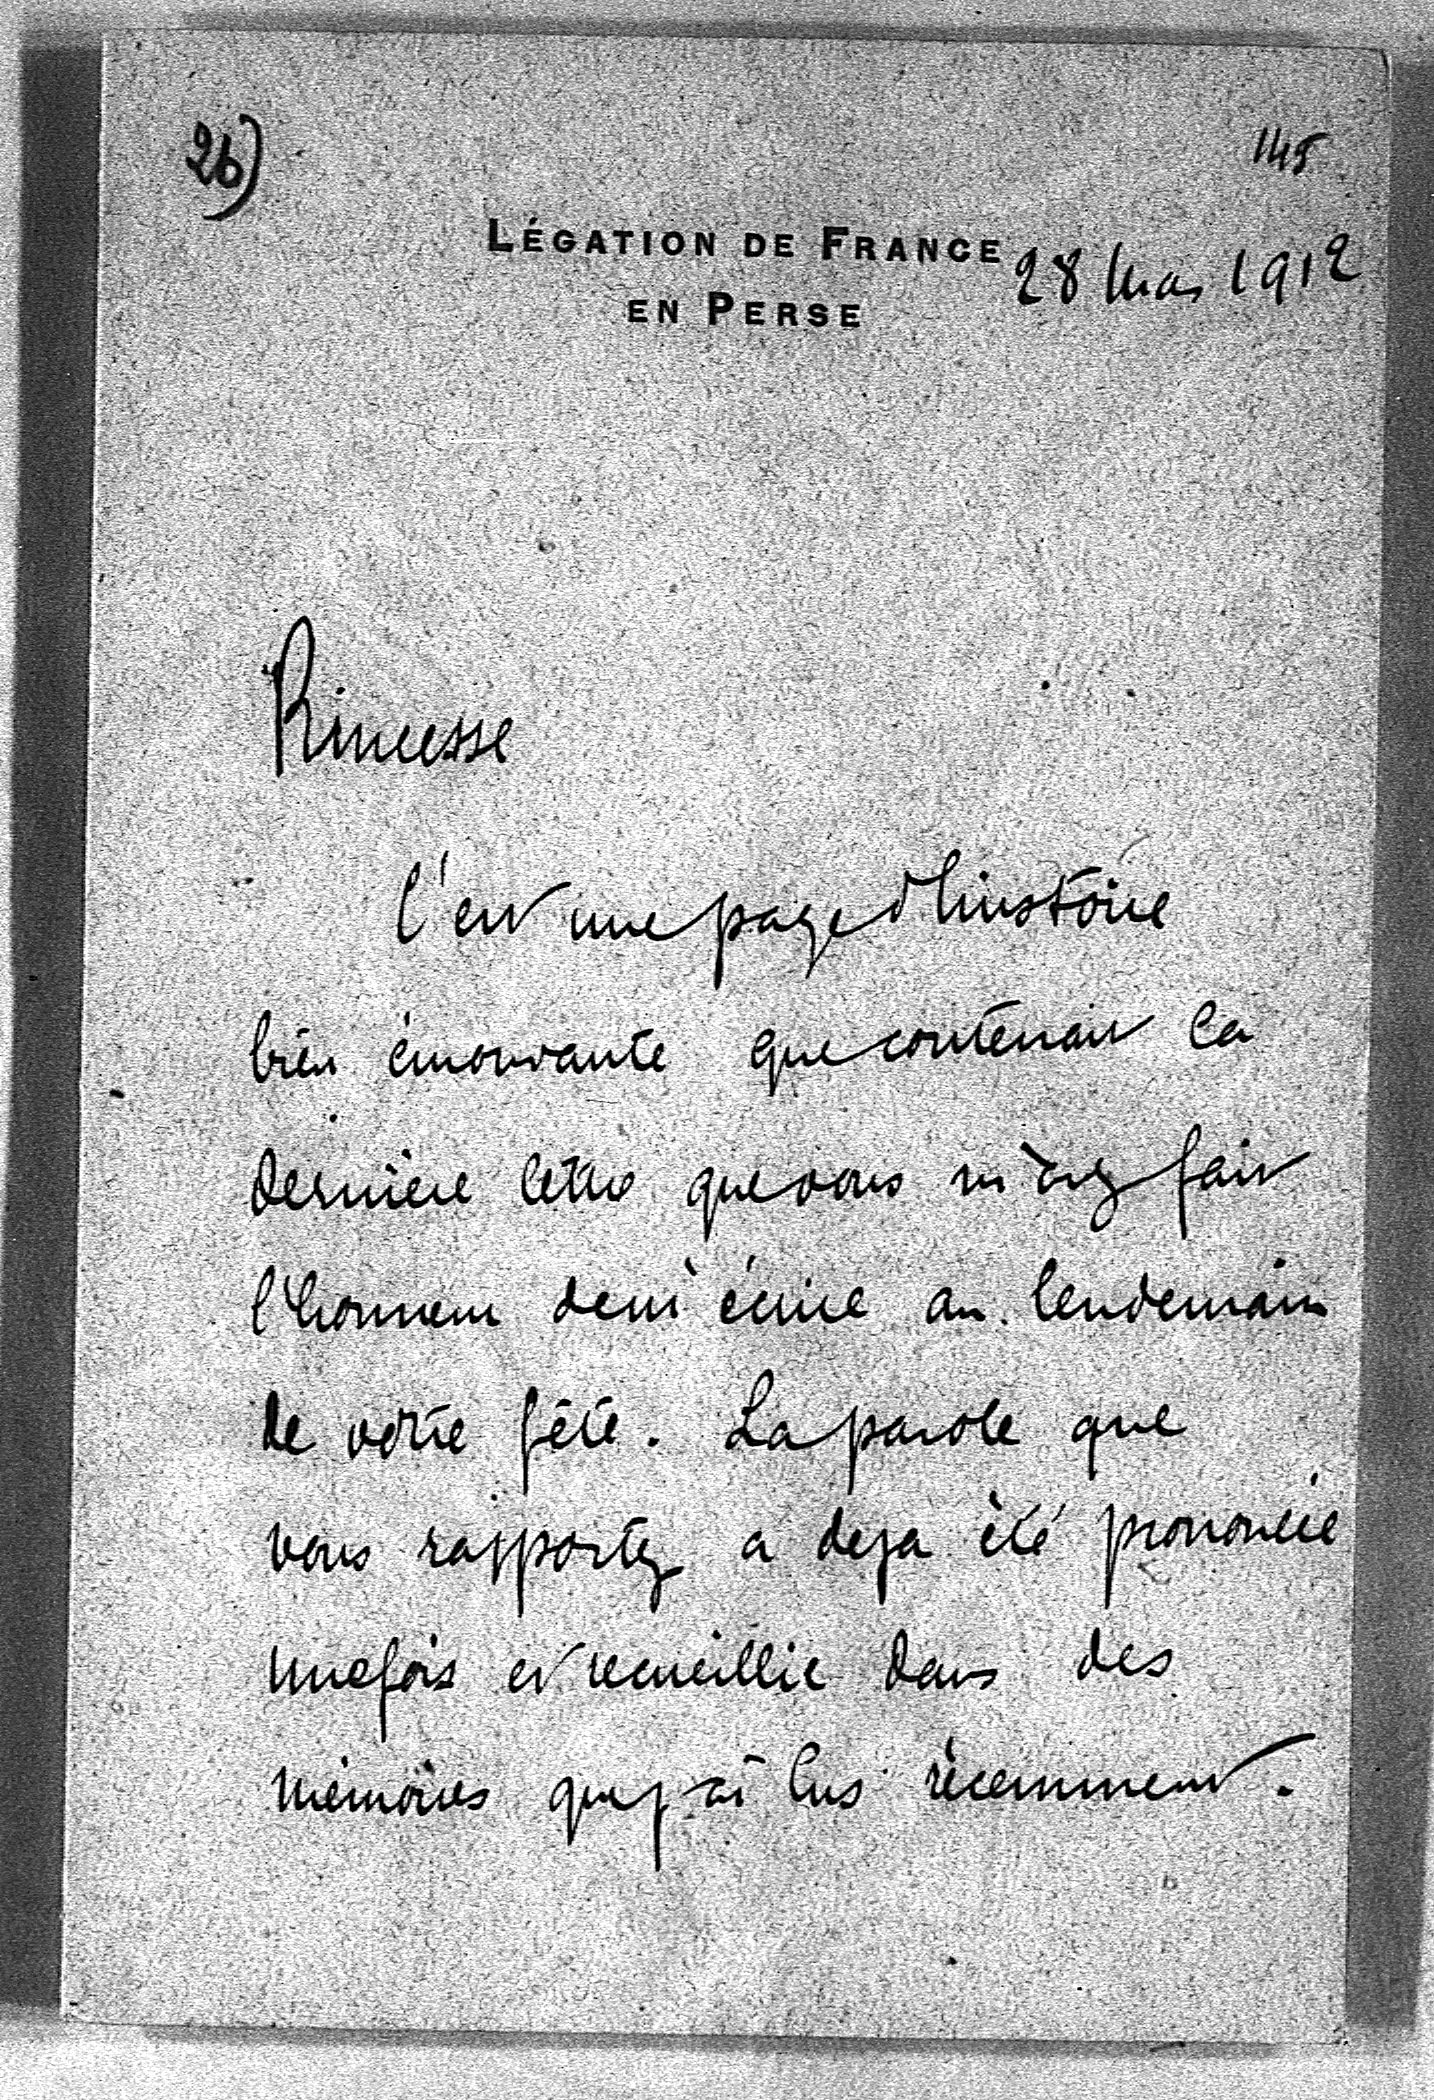 26)
145
LÉGATION DE FRANCE
EN PERSE
28 Mars 1912
Princesse
C'est une page d'histoire
bien émouvante que contenait la
dernière lettre que vous m'avez fait
l'honneur de m'écrire au lendemain
de votre fête. La parole que
vous rapportez a deja été prononcée
une fois et recueillie dans des
mémoires que j'ai lus récemment.